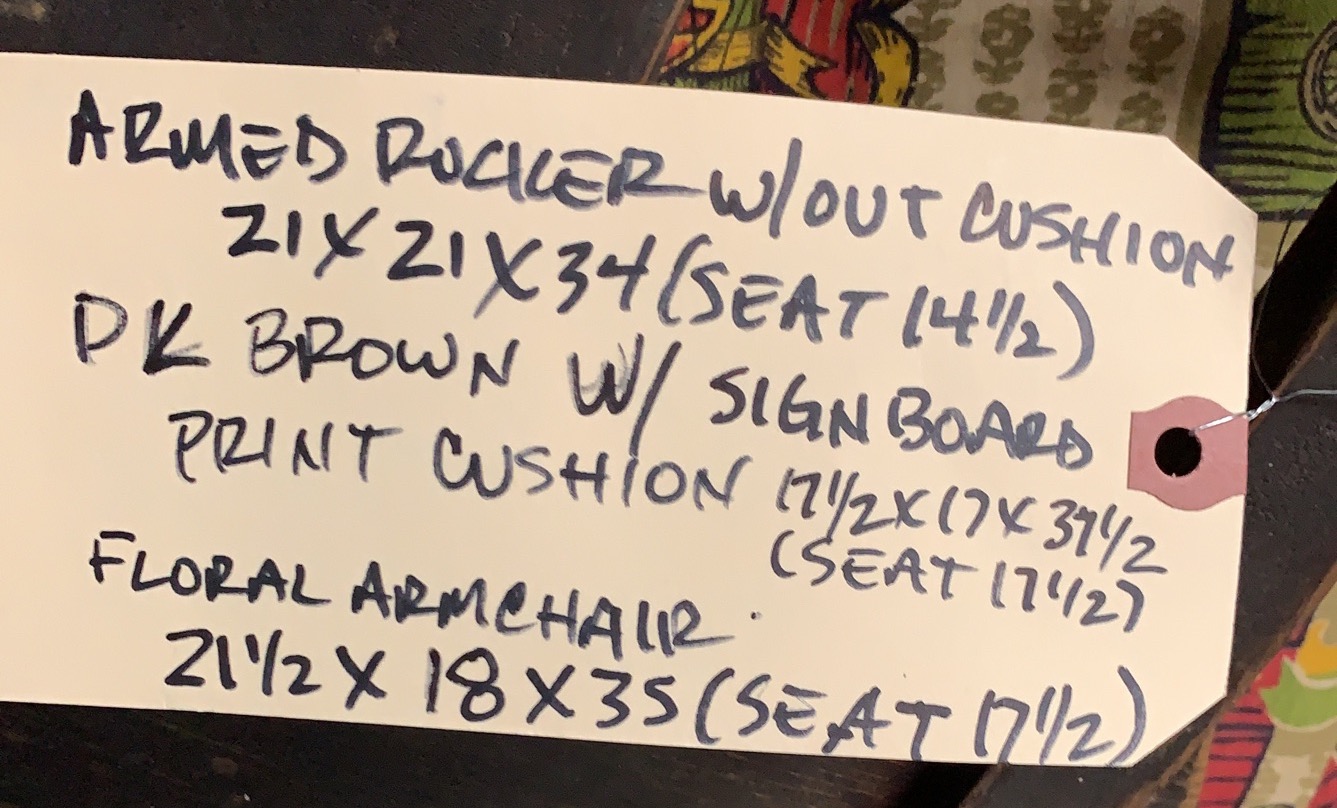 ARMED ROCKER W/OUT CUSHION
21 X 21 X 34 (SEAT 14 1/2)
DK BROWN W/ SIGNBOARD
PRINT CUSHION 17 1/2 X 17 X 39 1/2
(SEAT 17 1/2)
FLORAL ARMCHAIR
21 1/2 X 18 X 35 (SEAT 17 1/2)